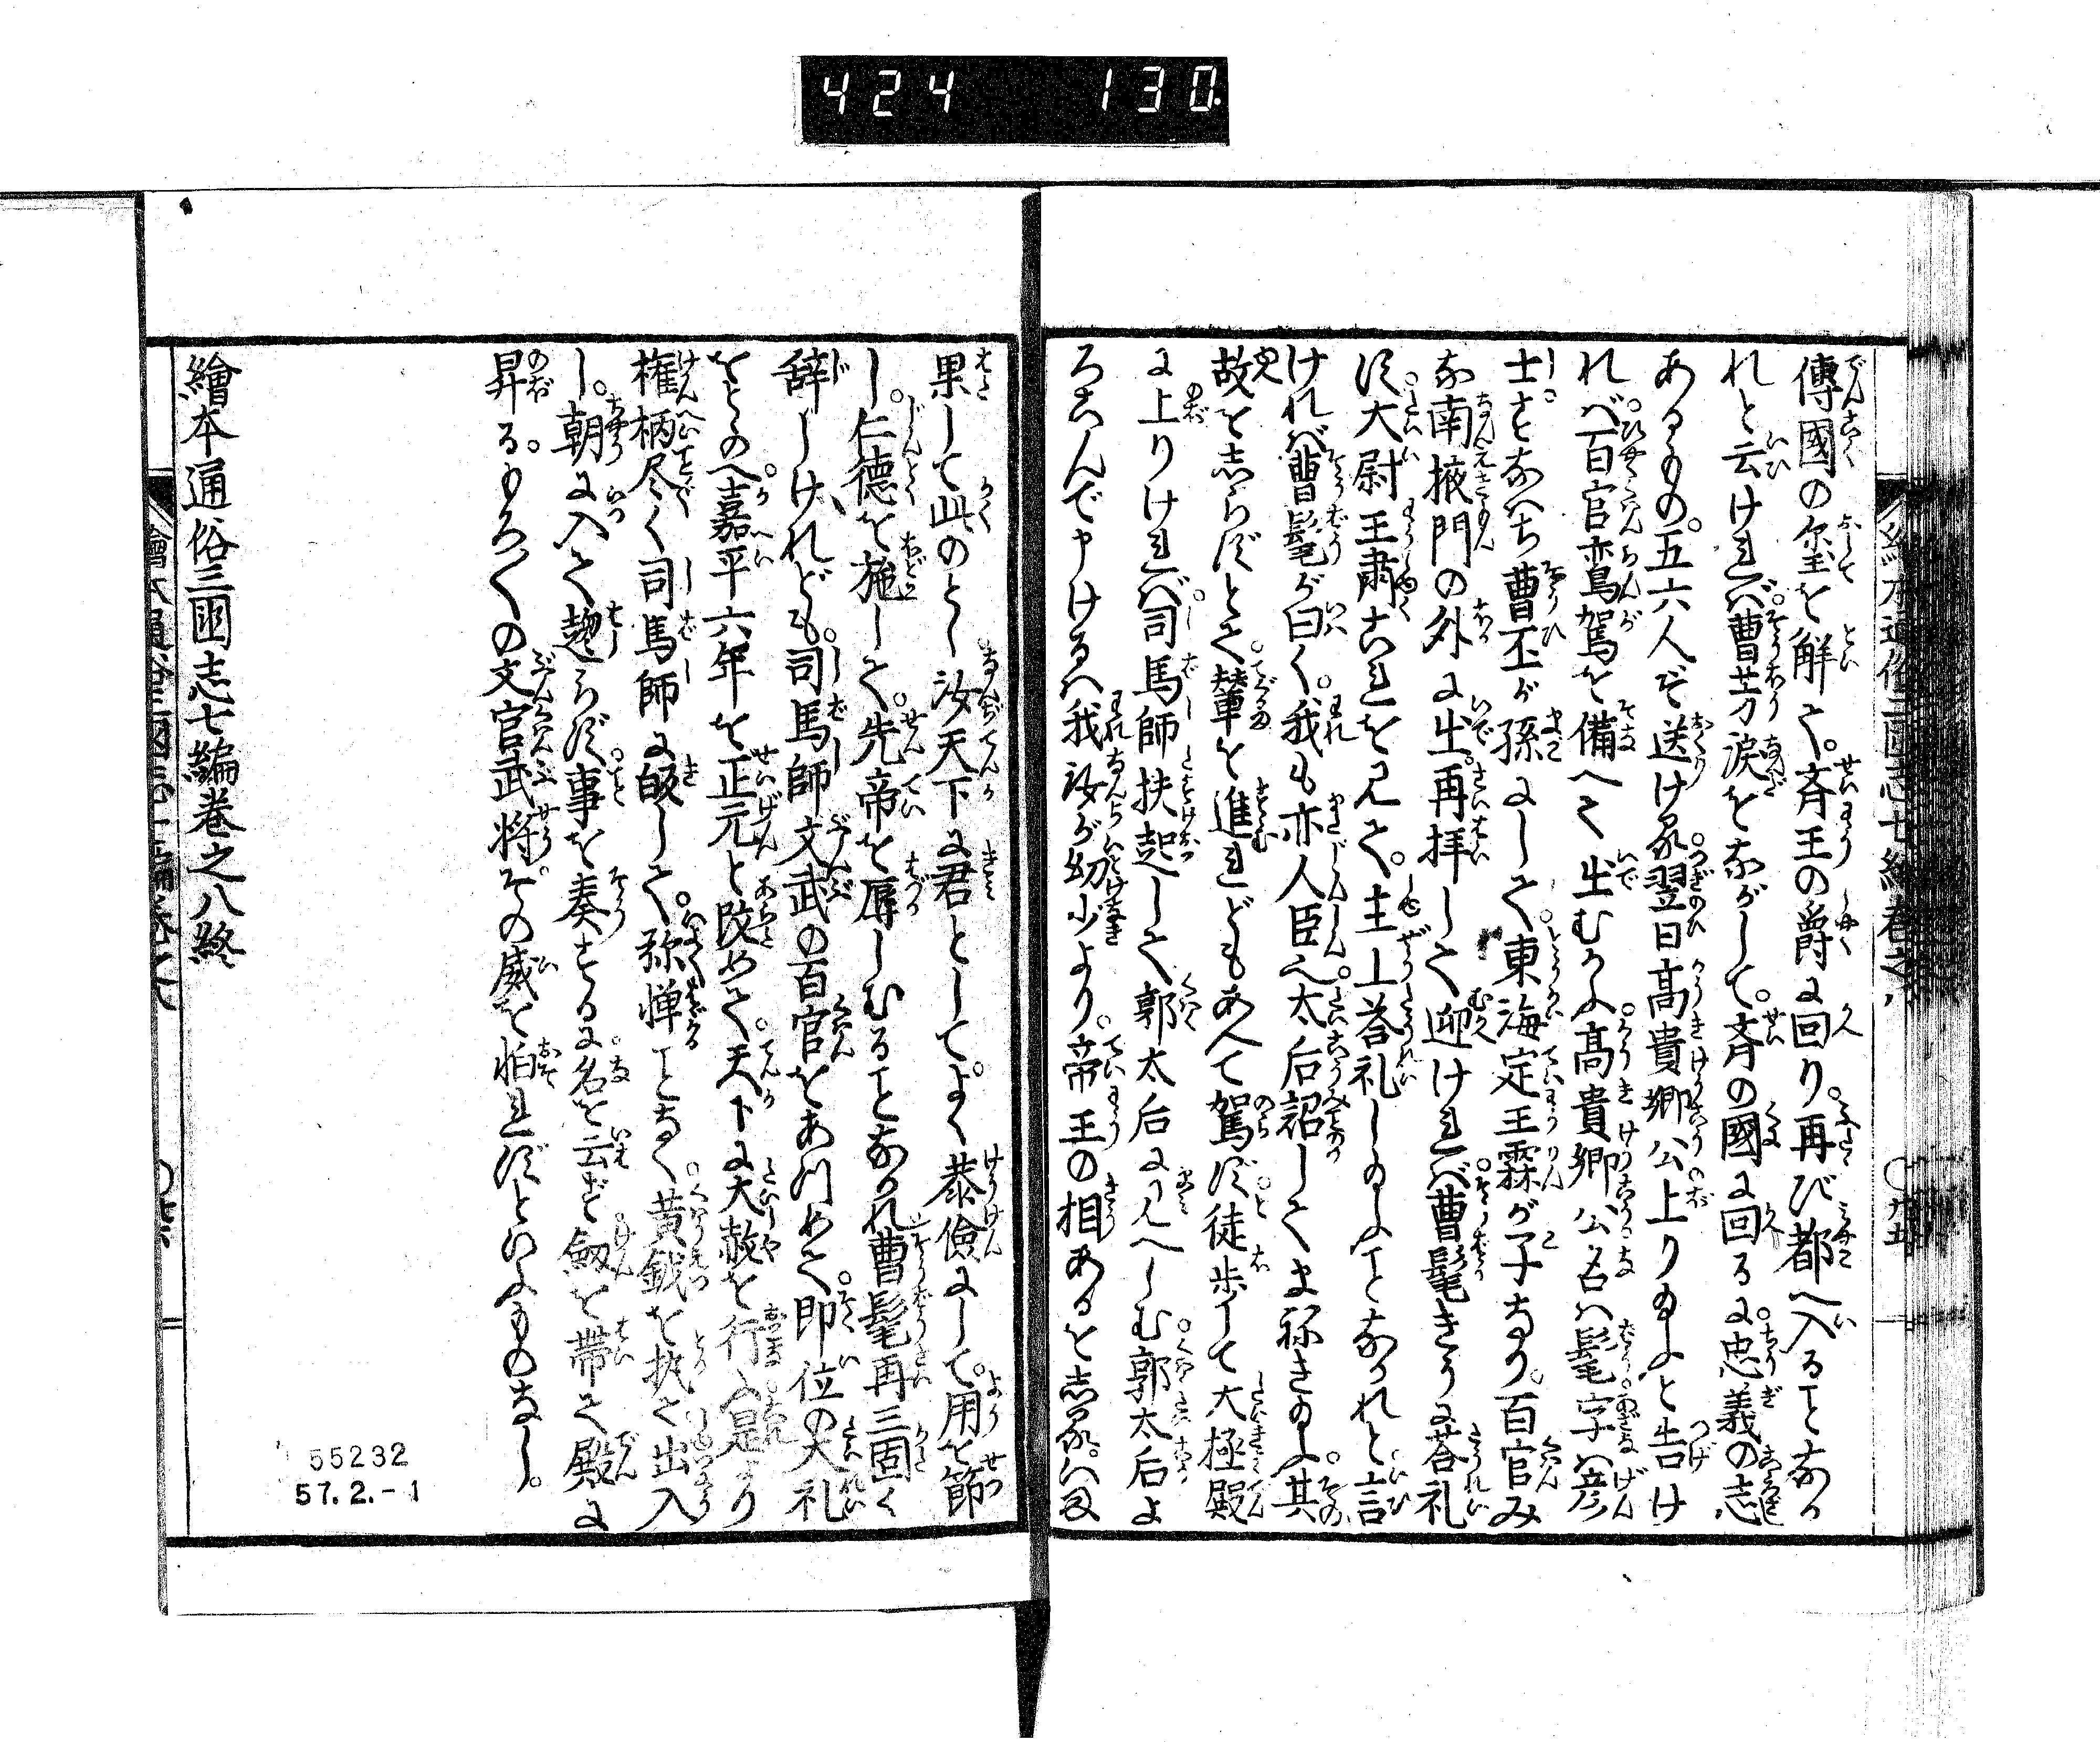 424 130
傳國の璽を解て。斉王の爵に回り。再び都へ入ることなか
れと云ければ。曹芳涙をながして。斉の國に回るに。忠義の志
あるもの。五六人ぞ送ける。翌日高貴卿公上り給ふと告け
れば。百官鸞駕を備へて出むかふ。高貴卿公名は髦字は彦
士すなはち曹丕が孫にして。東海定王霖が子なり。百官み
な南掖門の外に出。再拝して迎ければ。曹髦きうに荅礼
す。大尉王粛これを見て。主上荅礼し給ふことなかれと言
ければ。曹髦が曰く。我も亦人臣へ。太后詔してまねき給ふ。其
故をしらずとて。輦を進れどもあへて駕ず。徒歩して大極殿
に上りければ。司馬師扶起して郭太后に見へしむ。郭太后よ
ろこんで申けるは我汝が幼少より。帝王の相あるを志る。いま
果して此のとし汝天下に君として。よく恭儉にして。用を節
し。仁德を施して。先帝を辱しむることなかれ。曹髦再三固く
辞しけれども。司馬師文武の百官をあつめて。即位の大礼
をとゝのへ。嘉平六年を正元と改めて。天下に大赦を行ふ。是より
権柄尽く司馬師に皈して。弥憚ことなく。黄鉞を執て出入
し。朝に入て趨らず。事を奏するに名を云ず。劔を帯て殿に
昇る。もろ〱の文官武将。その威を怕れずといふものなし。
繪本通俗三國志七編巻之八終
55232
57.2.-1